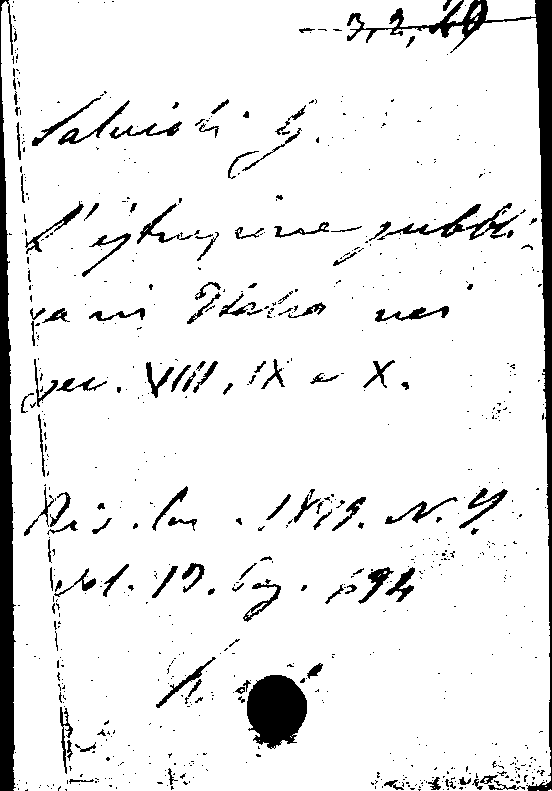 3,2,40
Salvioli G.
L'istruzione pubbli
ca in Italia nei
sec. VIII, IX e X.
Riv. 1899. N. 4.
Vol. 13. Pag. 694